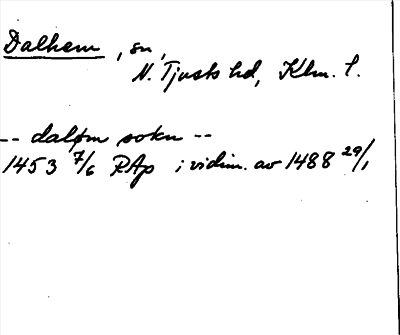 Dalhem, sn,
N. Tjusts hd, Klm. l.
-- daløm sokn --
1453 7/6 RAp i vidim. av 1488 29/1